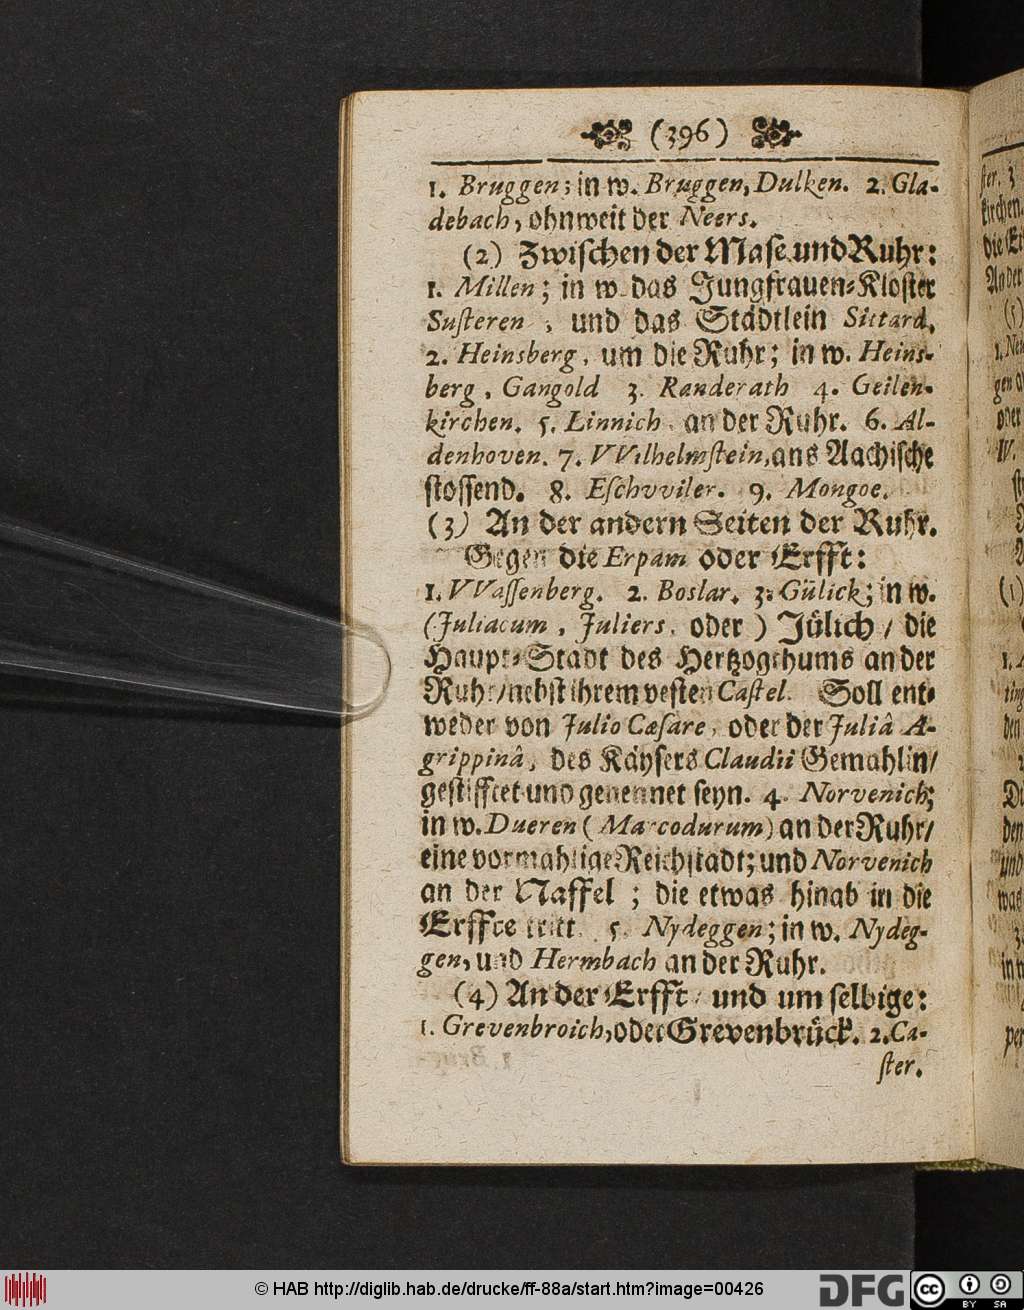 (396)
1. Bruggen; in w. Bruggen, Dulken. 2. Gla-
debach, ohnweit der Neers.
(2) Zwischen der Mase und Ruhr:
1. Millen; in w. das Jungfrauen-Kloster
Susteren, und das Städtlein Sittard,
2. Heinsberg, um die Ruhr; in w. Heins-
berg, Gangold 3. Randerath 4. Geilen-
kirchen. 5. Linnich, an der Ruhr. 6. Al-
denhoven. 7. VVilhelmstein, ans Aachische
stossend. 8. Eschvviler. 9. Mongoe.
(3) An der andern Seiten der Ruhr.
Gegen die Erpam oder Erfft:
1. VVassenberg. 2. Boslar. 3. Gülick; in w.
(Juliacum, Juliers, oder) Jülich / die
Haupt-Stadt des Hertzogthums an der
Ruhr/ nebst ihrem vesten Castel. Soll ent-
weder von Julio Cæsare, oder der Juliâ A-
grippinâ, des Käysers Claudii Gemahlin/
gestifftet und genennet seyn. 4. Norvenich;
in w. Dueren (Marcodurum) an der Ruhr/
eine vormahlige Reichstadt; und Norvenich
an der Naffel; die etwas hinab in die
Erffte tritt. 5. Nydeggen; in w. Nydeg-
gen, und Hermbach an der Ruhr.
(4) An der Erfft / und um selbige:
1. Grevenbroich, oder Grevenbrück. 2. Ca-
ster.
© HAB http://diglib.hab.de/drucke/ff-88a/start.htm?image=00426
DFG
cc
BY SA